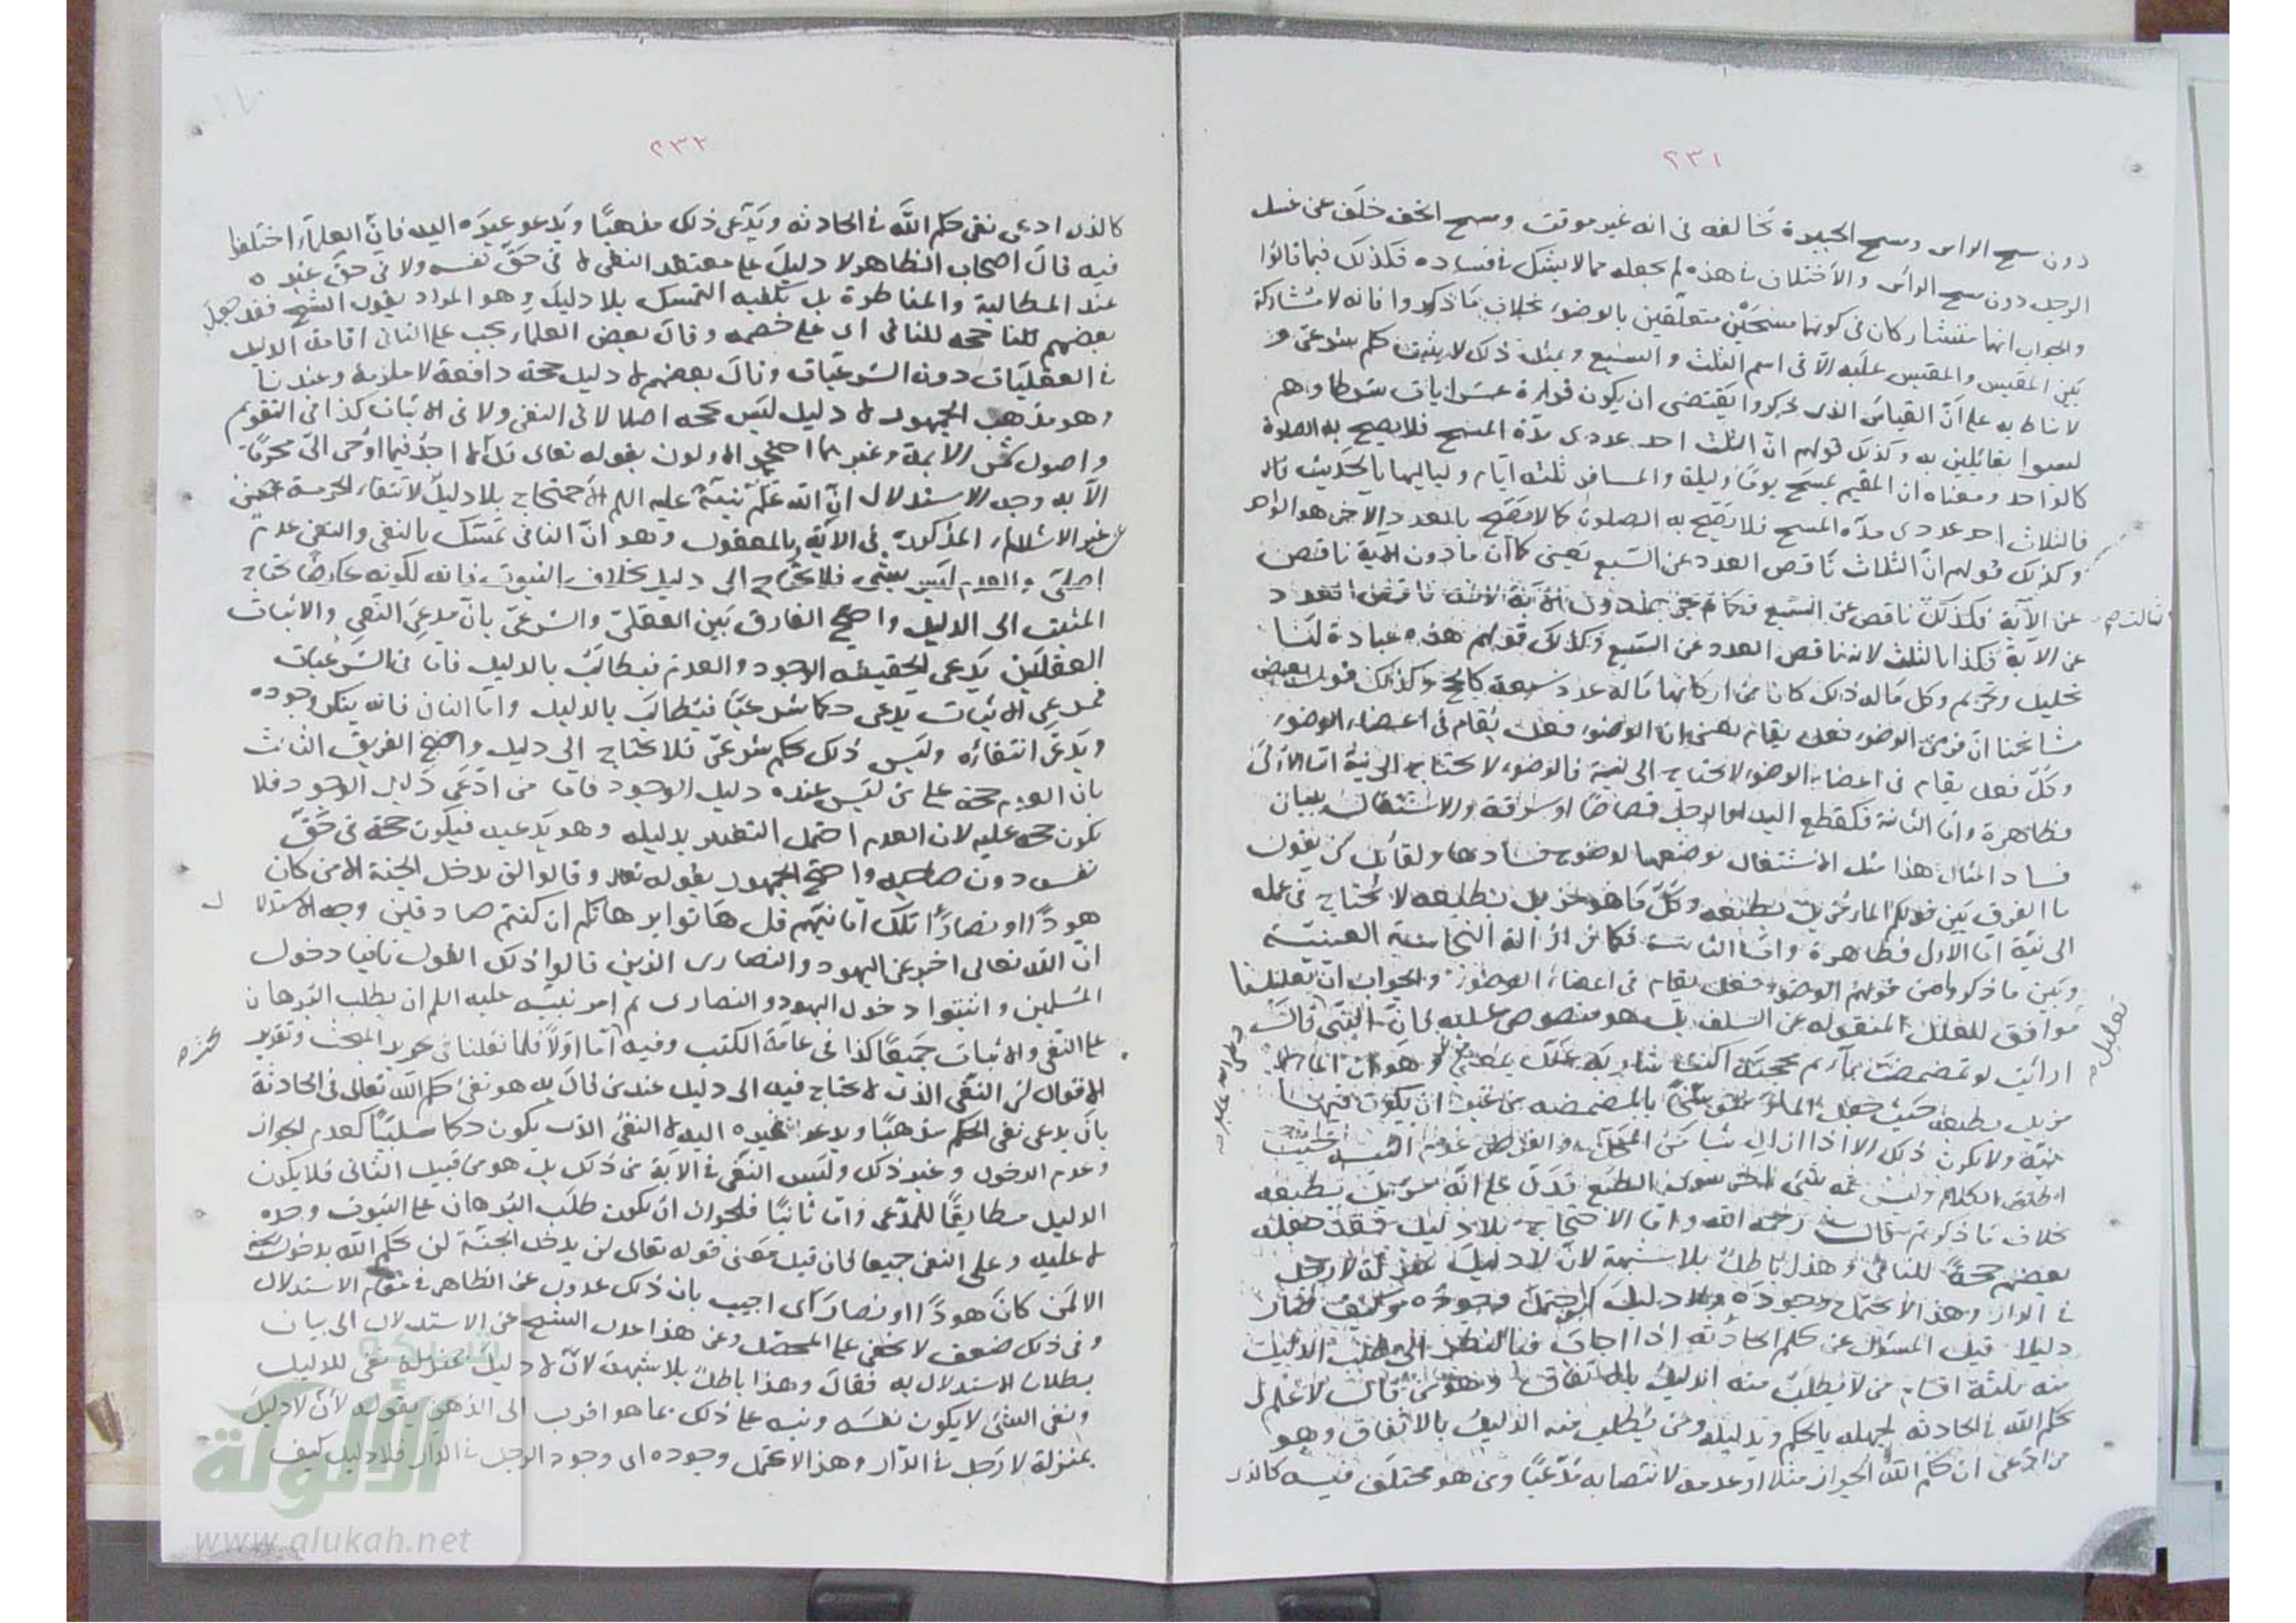 ٢٣١
دون مسح الراس ومسح الجبيرة تخالفه فى انه غير موقت ومسح الخف خلف عن غسل
الرجل دون مسح الرأس والأختلاف فى هذه لم يجعله مما لا يشك فى فساده فكذلك فيما قالوا
والجواب انهما يتشاركان فى كونهما مسحين متعلقين بالوضوء بخلاف ما ذكروا فانه لا مشاركة
بين المقيس والمقيس عليه الا فى اسم الثلث والسبع وبمثل ذلك لا يثبت حكم شرعى و
لا يناط به على ان القياس الذى ذكروا يقتضى ان يكون قراءة عشر ايات شرطا وهم
ليسوا بقائلين به وكذلك قولهم ان الثلث احد عددى مدة المسح فلا يصح به الصلوة
كالواحد ومعناه ان المقيم يمسح يوما وليلة والمسافر ثلثه ايام ولياليها بالحديث قال
فالثلاث احد عددى مدة المسح فلا يصح به الصلوة كما لا يصح بالعدد الآخر هو الواحد
وكذلك قولهم ان الثلاث ناقص العدد عن السبع يعنى كما ان ما دون الاية ناقص
عن الآية فكذلك ناقص عن السبع فكما لم يجز بما دون الآية لانه ناقص العدد
عن الآية فكذا بالثلث لانه ناقص العدد عن السبع وكذلك قولهم هذه عبادة لها
تحليل وتحريم وكل ماله ذلك كان من اركانها ماله عدد سبعة كالحج وكذلك قول بعض
مشائخنا ان فرض الوضوء فعل يقام يعنى ان الوضوء فعل يقام فى اعضاء الوضوء
وكل فعل يقام فى اعضاء الوضوء لا يحتاج الى نية فالوضوء لا يحتاج الى نية اما الأولى
فظاهرة واما الثانية فكقطع اليد او الرجل قصاصا او سرقة والاشتغال ببيان
فساد امثال هذا مثل الاشتغال بوضعها لوضوح فسادها ولقائل ان يقول
ما الفرق بين قولكم الماء مزيل بطبعه وكل ما هو مزيل بطبعه لا يحتاج فى عمله
الى نية اما الاول فظاهرة واما الثانية فكما فى ازالة النجاسة العينية
وبين ما ذكروا من قولهم الوضوء فعل يقام فى اعضاء الوضوء والجواب ان تعليلنا
موافق للعلل المنقوله عن السلف بل هو منصوص عليه فان النبى قال
ارأيت لو تمضمضت بماء ثم مججته اكنت شاربه علل بمعنى وهو ان الماء
مزيل بطبعه حيث جعل بالمضمضه من غير ان يكون فيها
نية ولا يكون ذلك الا اذا ازال شيئا من المحل والفرض عدم النيه حيث
اطلق الكلام وليس ثمه شئ اخر سوى الطبع فدل على انه مزيل بطبعه
بخلاف ما ذكرتم قال رحمه الله واما الاحتجاج بلا دليل فقد جعله
بعضهم حجة للنافى وهذا باطل بلا شبهة لان لا دليل بمنزلة لا رجل
فى الدار وهذا لا يحتمل وجوده ولا دليل كيف احتمل وجوده وكيف صار
دليلا قيل المسئول عن حكم الحادثه اذا اجاب فبالنظر الى طلب الدليل
منه ثلثة اقسام من لا يطلب منه الدليل بالاتفاق وهو من قال لا اعلم
حكم الله فى الحادثه لجهله بالحكم وبدليله ومن يطلب منه الدليل بالاتفاق وهو
من ادعى ان حكم الله الجواز مثلا او عدمه لانتصابه مدعيا ومن هو مختلف فيه كالذى
تعليل
٢٣٢
كالذى ادعى نفى حكم الله فى الحادثه ويدعى ذلك مذهبا ويدعو غيره اليه فان العلماء اختلفوا
فيه قال اصحاب الظاهر لا دليل على معتقد النفى لا فى حق نفسه ولا فى حق غيره
عند المطالبة والمناظرة بل يكفيه التمسك بلا دليل وهو المراد بقول الشيخ فقد جعل
بعضهم حجه للنافى اى على خصمه وقال بعض العلماء يجب على النافى اقامة الدليل
فى العقليات دون الشرعيات وقال بعضهم لا دليل حجة دافعة لا ملزمة وعندنا
وهو مذهب الجمهور لا دليل ليس بحجه اصلا لا فى النفى ولا فى الاثبات كذا فى التقويم
واصول شمس الايمة وغيرهما احتج الاولون بقوله تعالى قل لا اجد فيما اوحى الى محرما
الآيه وجه الاستدلال ان الله علم نبيه عليه السلم الاحتجاج بلا دليل لانتفاء الحرمة عن
غير الاشياء المذكورة فى الآية وبالمعقول وهو ان النافى تمسك بالنفى والنفى عدم
اصلى والعدم ليس بشئ فلا يحتاج الى دليل بخلاف الثبوت فانه لكونه عارضا يحتاج
المثبت الى الدليل واحتج الفارق بين العقلى والشرعى بان مدعى النفى والاثبات
العقليين يدعى لحقيقه الوجود والعدم فيطالب بالدليل فاما فى الشرعيات
فمدعى الاثبات يدعى حكما شرعيا فيطالب بالدليل واما النافى فانه ينكر وجوده
ويدعى انتفاءه وليس ذلك بحكم شرعى فلا يحتاج الى دليل واحتج الفريق الثالث
بان العدم حجة على من ليس عنده دليل الوجود فاما من ادعى دليل الوجود فلا
يكون حجه عليه لان العدم احتمل التغير بدليله وهو يدعيه فيكون حجة فى حق
نفسه دون صاحبه واحتج الجمهور بقوله تعالى وقالوا لن يدخل الجنة الا من كان
هودا او نصارى تلك امانيهم قل هاتوا برهانكم ان كنتم صادقين وجه الاستدلال
ان الله تعالى اخبر عن اليهود والنصارى الذين قالوا ذلك القول نافيا دخول
المسلمين واثبتوا دخول اليهود والنصارى ثم امر نبيه عليه السلم ان يطلب البرهان
على النفى والاثبات جميعا كذا فى عامة الكتب وفيه اما اولا فلما نقلنا فى تحرير المبحث وتقرير
الاقوال لان النفى الذى لا يحتاج فيه الى دليل عند من قال به هو نفى حكم الله تعالى فى الحادثة
بان يدعى نفى الحكم مذهبا ويدعو غيره اليه لا النفى الذى يكون حكما سلبيا كعدم الجواز
وعدم الدخول وغير ذلك وليس النفى فى الآية من ذلك بل هو من قبيل الثانى فلا يكون
الدليل مطابقا للمدعى واما ثانيا فلجواز ان يكون طلب البرهان على الثبوت وحده
لا عليه وعلى النفى جميعا فان قيل معنى قوله تعالى لن يدخل الجنة لن يحكم الله بدخول الجنة
الا لمن كان هودا او نصارى اجيب بان ذلك عدول عن الظاهر فى مقام الاستدلال
وفى ذلك ضعف لا يخفى على المحصل وعن هذا عدل الشيخ عن الاستدلال الى بيان
بطلان الاستدلال به فقال وهذا باطل بلا شبهة لان لا دليل بمنزلة نفى للدليل
ونفى الشئ لا يكون نفسه ونبه على ذلك بما هو اقرب الى الذهن بقوله لان لا دليل
بمنزلة لا رجل فى الدار وهذا لا يحتمل وجوده اى وجود الرجل فى الدار فلا دليل كيف
شبكة
الألوكة
www.alukah.net